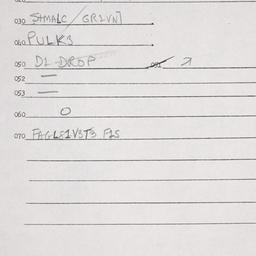 030 STMALC / GR2VN7
060 PULKS
050 D2 DROP 051 ↗
052 —
053 —
060 O
070 FAGLE2V3T3 F2S